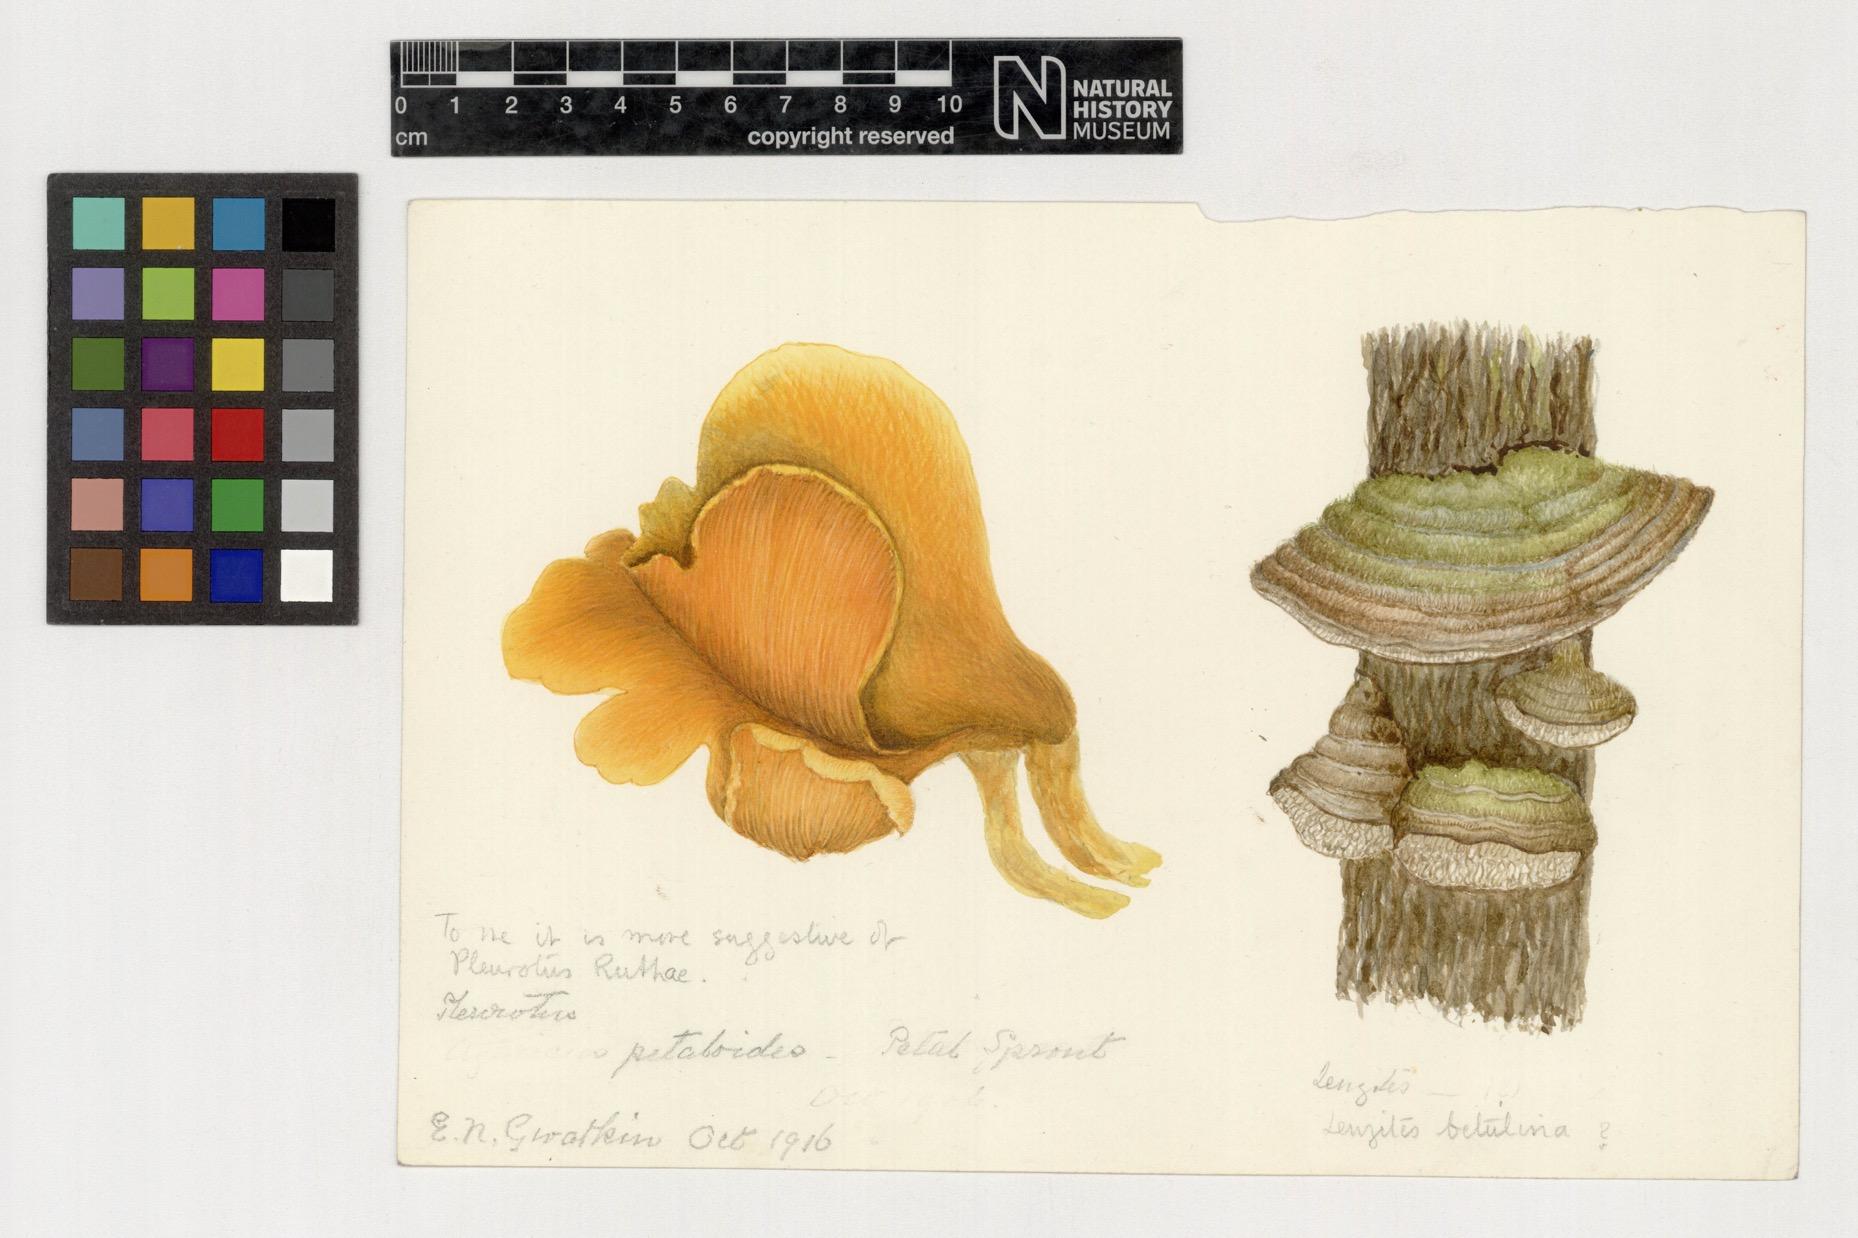 0 1 2 3 4 5 6 7 8 9 10
cm copyright reserved
NATURAL
HISTORY
MUSEUM
To me it is more suggestive of
Pleurotus Ruthae.
Pleurotus
petaloides - Petal Sprout
Oct 1916.
E. N. Gwatkin Oct 1916
Lenzites —
Lenzites betulina ?